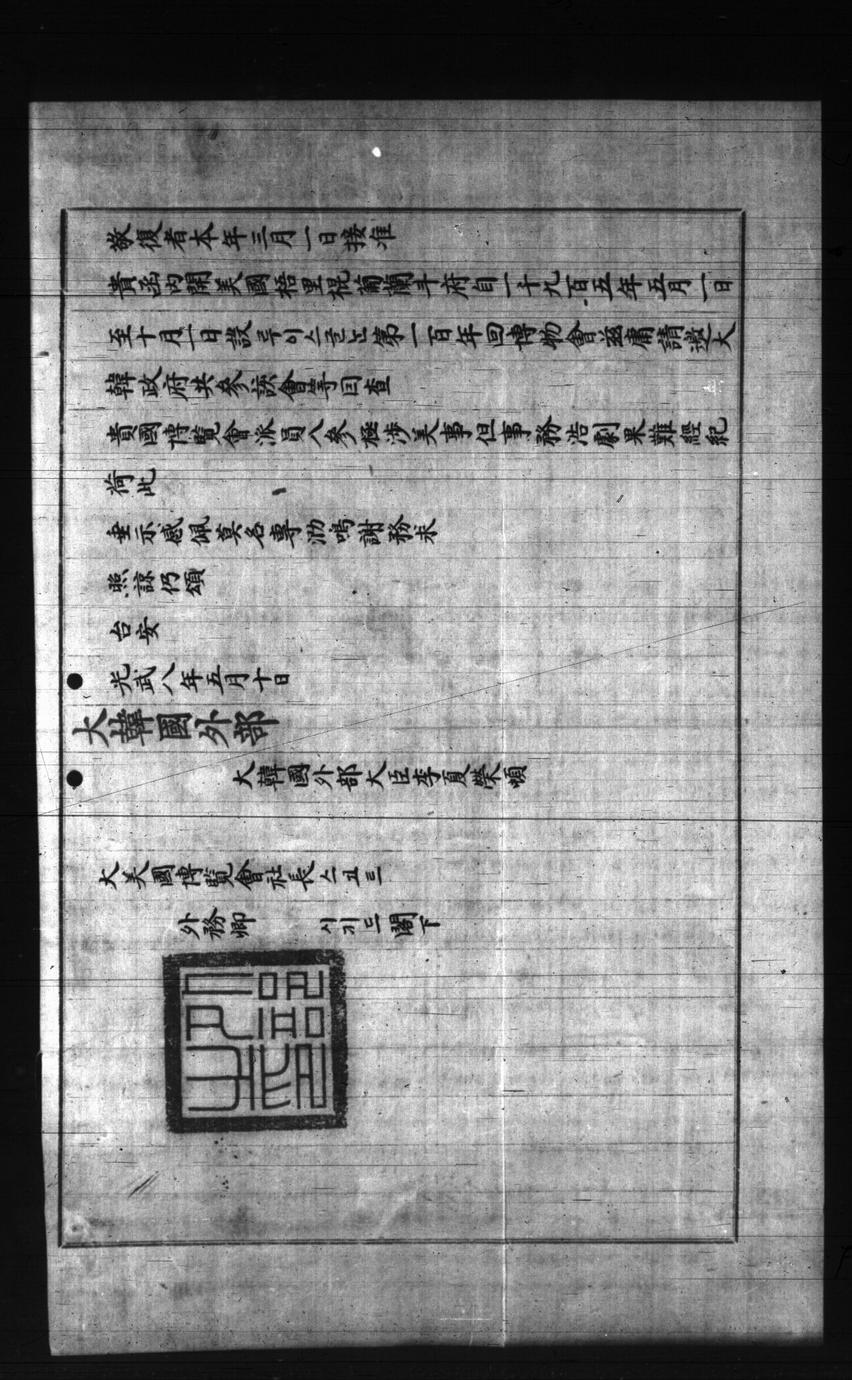 敬復者本年三月一日接准
貴函內開美國梧里棍葡蘭斗府自一千九百五年五月一日
至十月一日設루이스第一百年回博物會玆庸請邀大
韓政府共參該會等因查
貴國博覽會派員入參極涉美事但事務浩劇果難經紀
荷此
垂示感佩莫名專泐鳴謝務求
照諒仍頌
台安
光武八年五月十日
大韓國外部
大韓國外部大臣李夏榮頓
大美國博覽會社長
外務卿 閣下